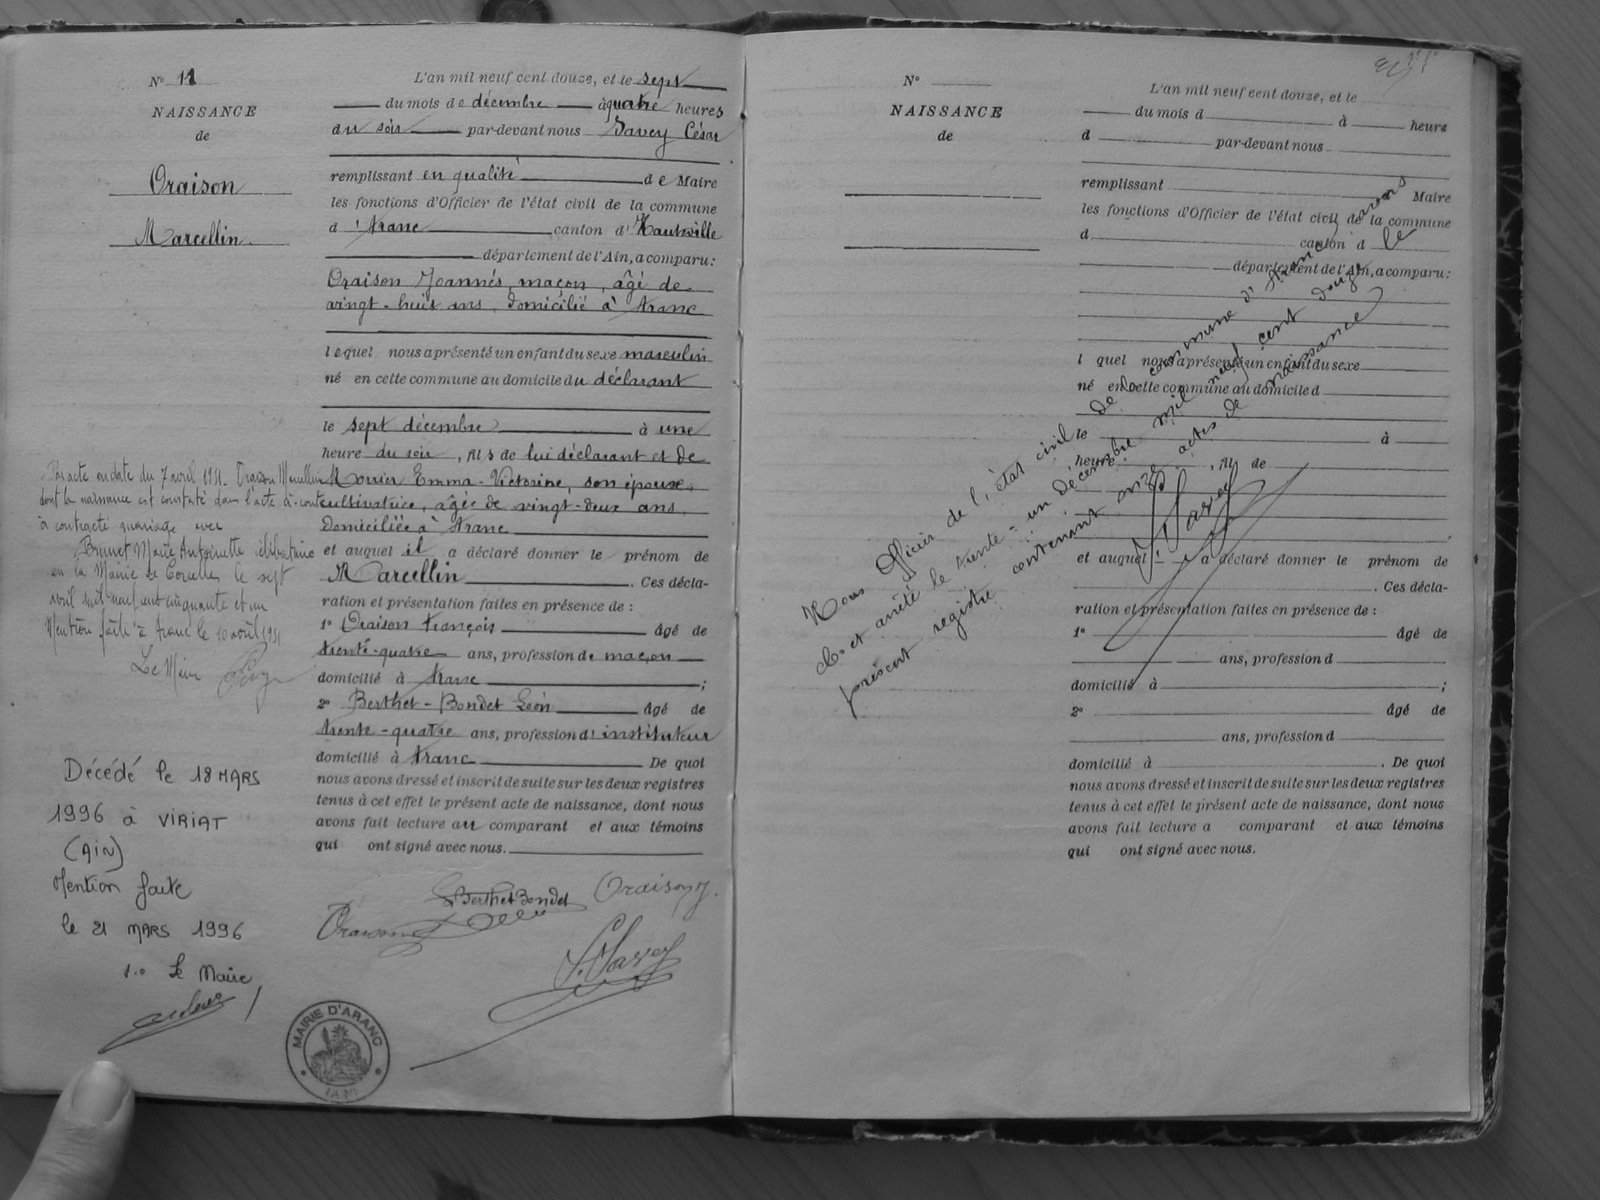 N° 11
NAISSANCE
de
Oraison
Marcellin.
L'an mil neuf cent douze, et le sept
du mois de décembre à quatre heures
du soir par-devant nous Savey César
remplissant en qualité de Maire
les fonctions d'Officier de l'état civil de la commune
d'Aranc canton d'Hauteville
département de l'Ain, a comparu:
Oraison Joannés, maçon, âgé de
vingt-huit ans, domicilié à Aranc
lequel nous a présenté un enfant du sexe masculin
né en cette commune au domicile du déclarant
le sept décembre à une
heure du soir, fils de lui déclarant et de
Emma-Victorine, son épouse,
cultivatrice, âgée de vingt-deux ans,
domiciliée à Aranc
et auquel il a déclaré donner le prénom de
Marcellin. Ces décla-
ration et présentation faites en présence de :
1° Oraison François âgé de
trente-quatre ans, profession de maçon
domicilié à Aranc ;
2° Berthet-Bondet Léon âgé de
trente-quatre ans, profession d'instituteur
domicilié à Aranc De quoi
nous avons dressé et inscrit de suite sur les deux registres
tenus à cet effet le présent acte de naissance, dont nous
avons fait lecture au comparant et aux témoins
qui ont signé avec nous.
Berthet Bondet
Oraison J.
Oraison
C. Savey
Par acte en date du 7 avril 1951. Oraison Marcellin
dont la naissance est constatée dans l'acte ci-contre
à contracté mariage avec
Brunet Marie Antoinette célibataire
en la Mairie de Corcelles le sept
avril mil neuf cent cinquante et un
Mention faite à Aranc le 10 avril 1951
Le Maire
Décédé le 18 MARS
1996 à VIRIAT
(AIN)
Mention faite
le 21 MARS 1996
Le Maire
MAIRIE D'ARANC
(AIN)
N°
NAISSANCE
de
L'an mil neuf cent douze, et le
du mois d à heure
d par-devant nous
remplissant Maire
les fonctions d'Officier de l'état civil de la commune
d canton d
département de l'Ain, a comparu:
l quel nous a présenté un enfant du sexe
né en cette commune au domicile d
le à
heure , fil de
et auquel a déclaré donner le prénom de
. Ces décla-
ration et présentation faites en présence de :
1° âgé de
ans, profession d
domicilié à ;
2° âgé de
ans, profession d
domicilié à . De quoi
nous avons dressé et inscrit de suite sur les deux registres
tenus à cet effet le présent acte de naissance, dont nous
avons fait lecture a comparant et aux témoins
qui ont signé avec nous.
Nous Officier de l'état civil de la commune d'Aranc avons
clos et arrêté le trente-un décembre mil neuf cent douze le
présent registre contenant onze actes de naissance
C. Savey